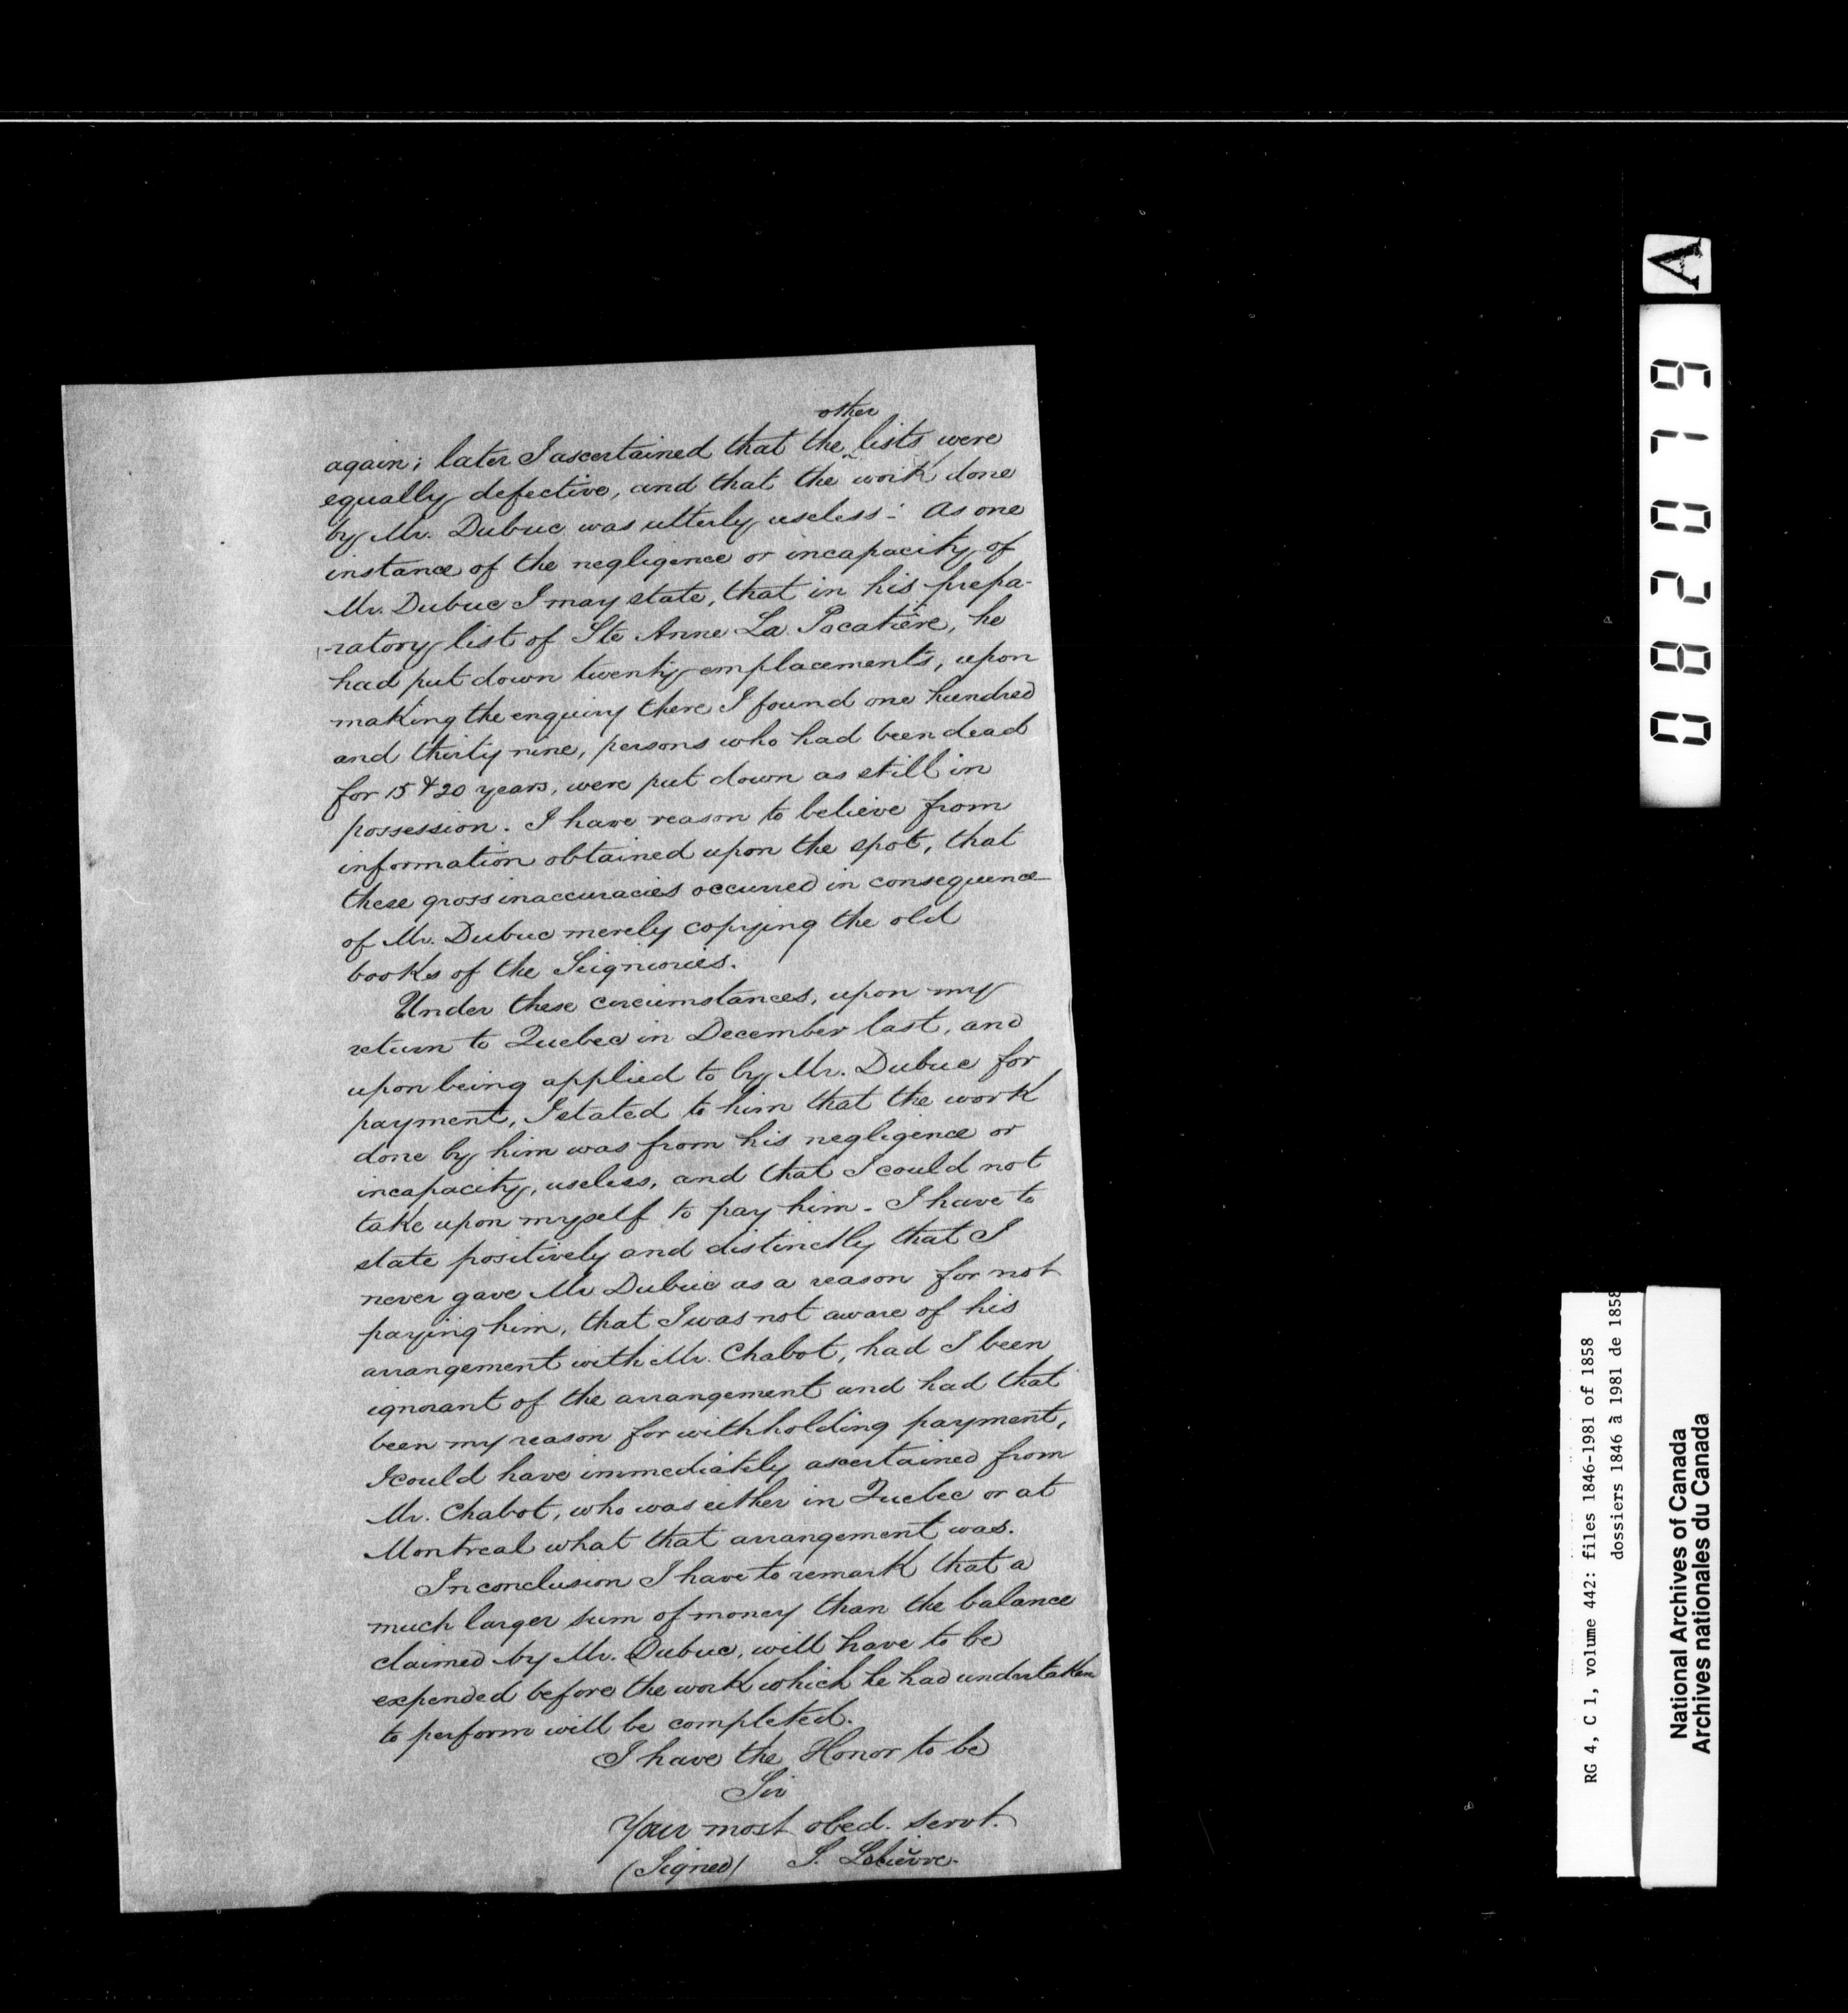 other
again; later I ascertained that the lists were
equally defective, and that the work done
by Mr. Dubuc was utterly useless: As one
instance of the negligence or incapacity of
Mr. Dubuc I may state, that in his prepa-
ratory list of Ste Anne La Pocatière, he
had put down twenty emplacements, upon
making the enquiry there I found one hundred
and thirty nine, persons who had been dead
for 15 & 20 years, were put down as still in
possession. I have reason to believe from
information obtained upon the spot, that
these gross inaccuracies occurred in consequence
of Mr. Dubuc merely copying the old
books of the Seigniories.
Under these circumstances, upon my
return to Quebec in December last, and
upon being applied to by Mr. Dubuc for
payment, I stated to him that the work
done by him was from his negligence or
incapacity, useless, and that I could not
take upon myself to pay him. I have to
state positively and distinctly that I
never gave Mr Dubuc as a reason for not
paying him, that I was not aware of his
arrangement with Mr. Chabot, had I been
ignorant of the arrangement and had that
been my reason for withholding payment,
I could have immediately ascertained from
Mr. Chabot, who was either in Quebec or at
Montreal what that arrangement was.
In conclusion I have to remark that a
much larger sum of money than the balance
claimed by Mr. Dubuc, will have to be
expended before the work which he had undertaken
to perform will be completed.
I have the Honor to be
Sir
Your most obed. servt.
(Signed) S. Lelièvre.
A
082079
RG 4, C 1, volume 442: files 1846-1981 of 1858
dossiers 1846 à 1981 de 1858
National Archives of Canada
Archives nationales du Canada